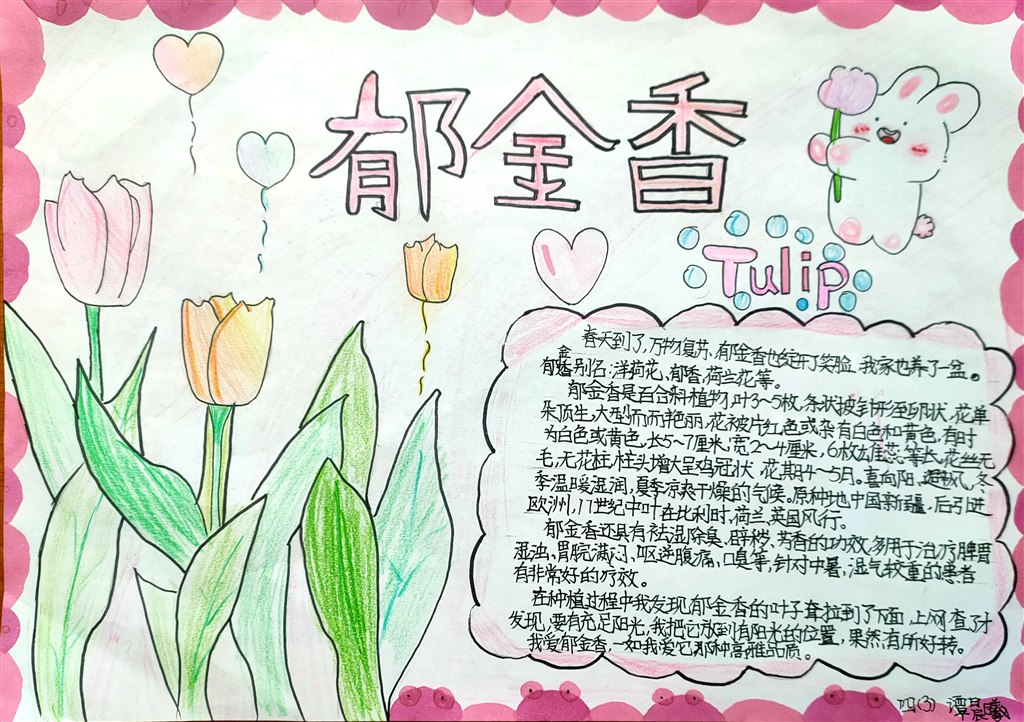 郁金香
Tulip
春天到了,万物复苏,郁金香也绽开了笑脸,我家也养了一盆。
郁金香别名:洋荷花、郁香、荷兰花等。
郁金香是百合科植物,叶3~5枚,条状披针形至卵状,花单
朵顶生,大型而艳丽,花被片红色或杂有白色和黄色,有时
为白色或黄色,长5~7厘米,宽2~4厘米,6枚雄蕊等长,花丝无
毛,无花柱,柱头增大呈鸡冠状,花期4~5月。喜向阳、避风,冬
季温暖湿润,夏季凉爽干燥的气候。原种地中国新疆,后引进
欧洲,17世纪中叶在比利时,荷兰,英国风行。
郁金香还具有祛湿除臭、辟秽、芳香的功效,多用于治疗脾胃
湿浊、胃脘满闷、呕逆腹痛、口臭等,针对中暑、湿气较重的患者
有非常好的疗效。
在种植过程中我发现郁金香的叶子耷拉到了下面,上网查了才
发现,要有充足阳光,我把它放到有阳光的位置,果然,有所好转。
我爱郁金香,一如我爱它那种高雅品质。
四(3) 谭晨曦